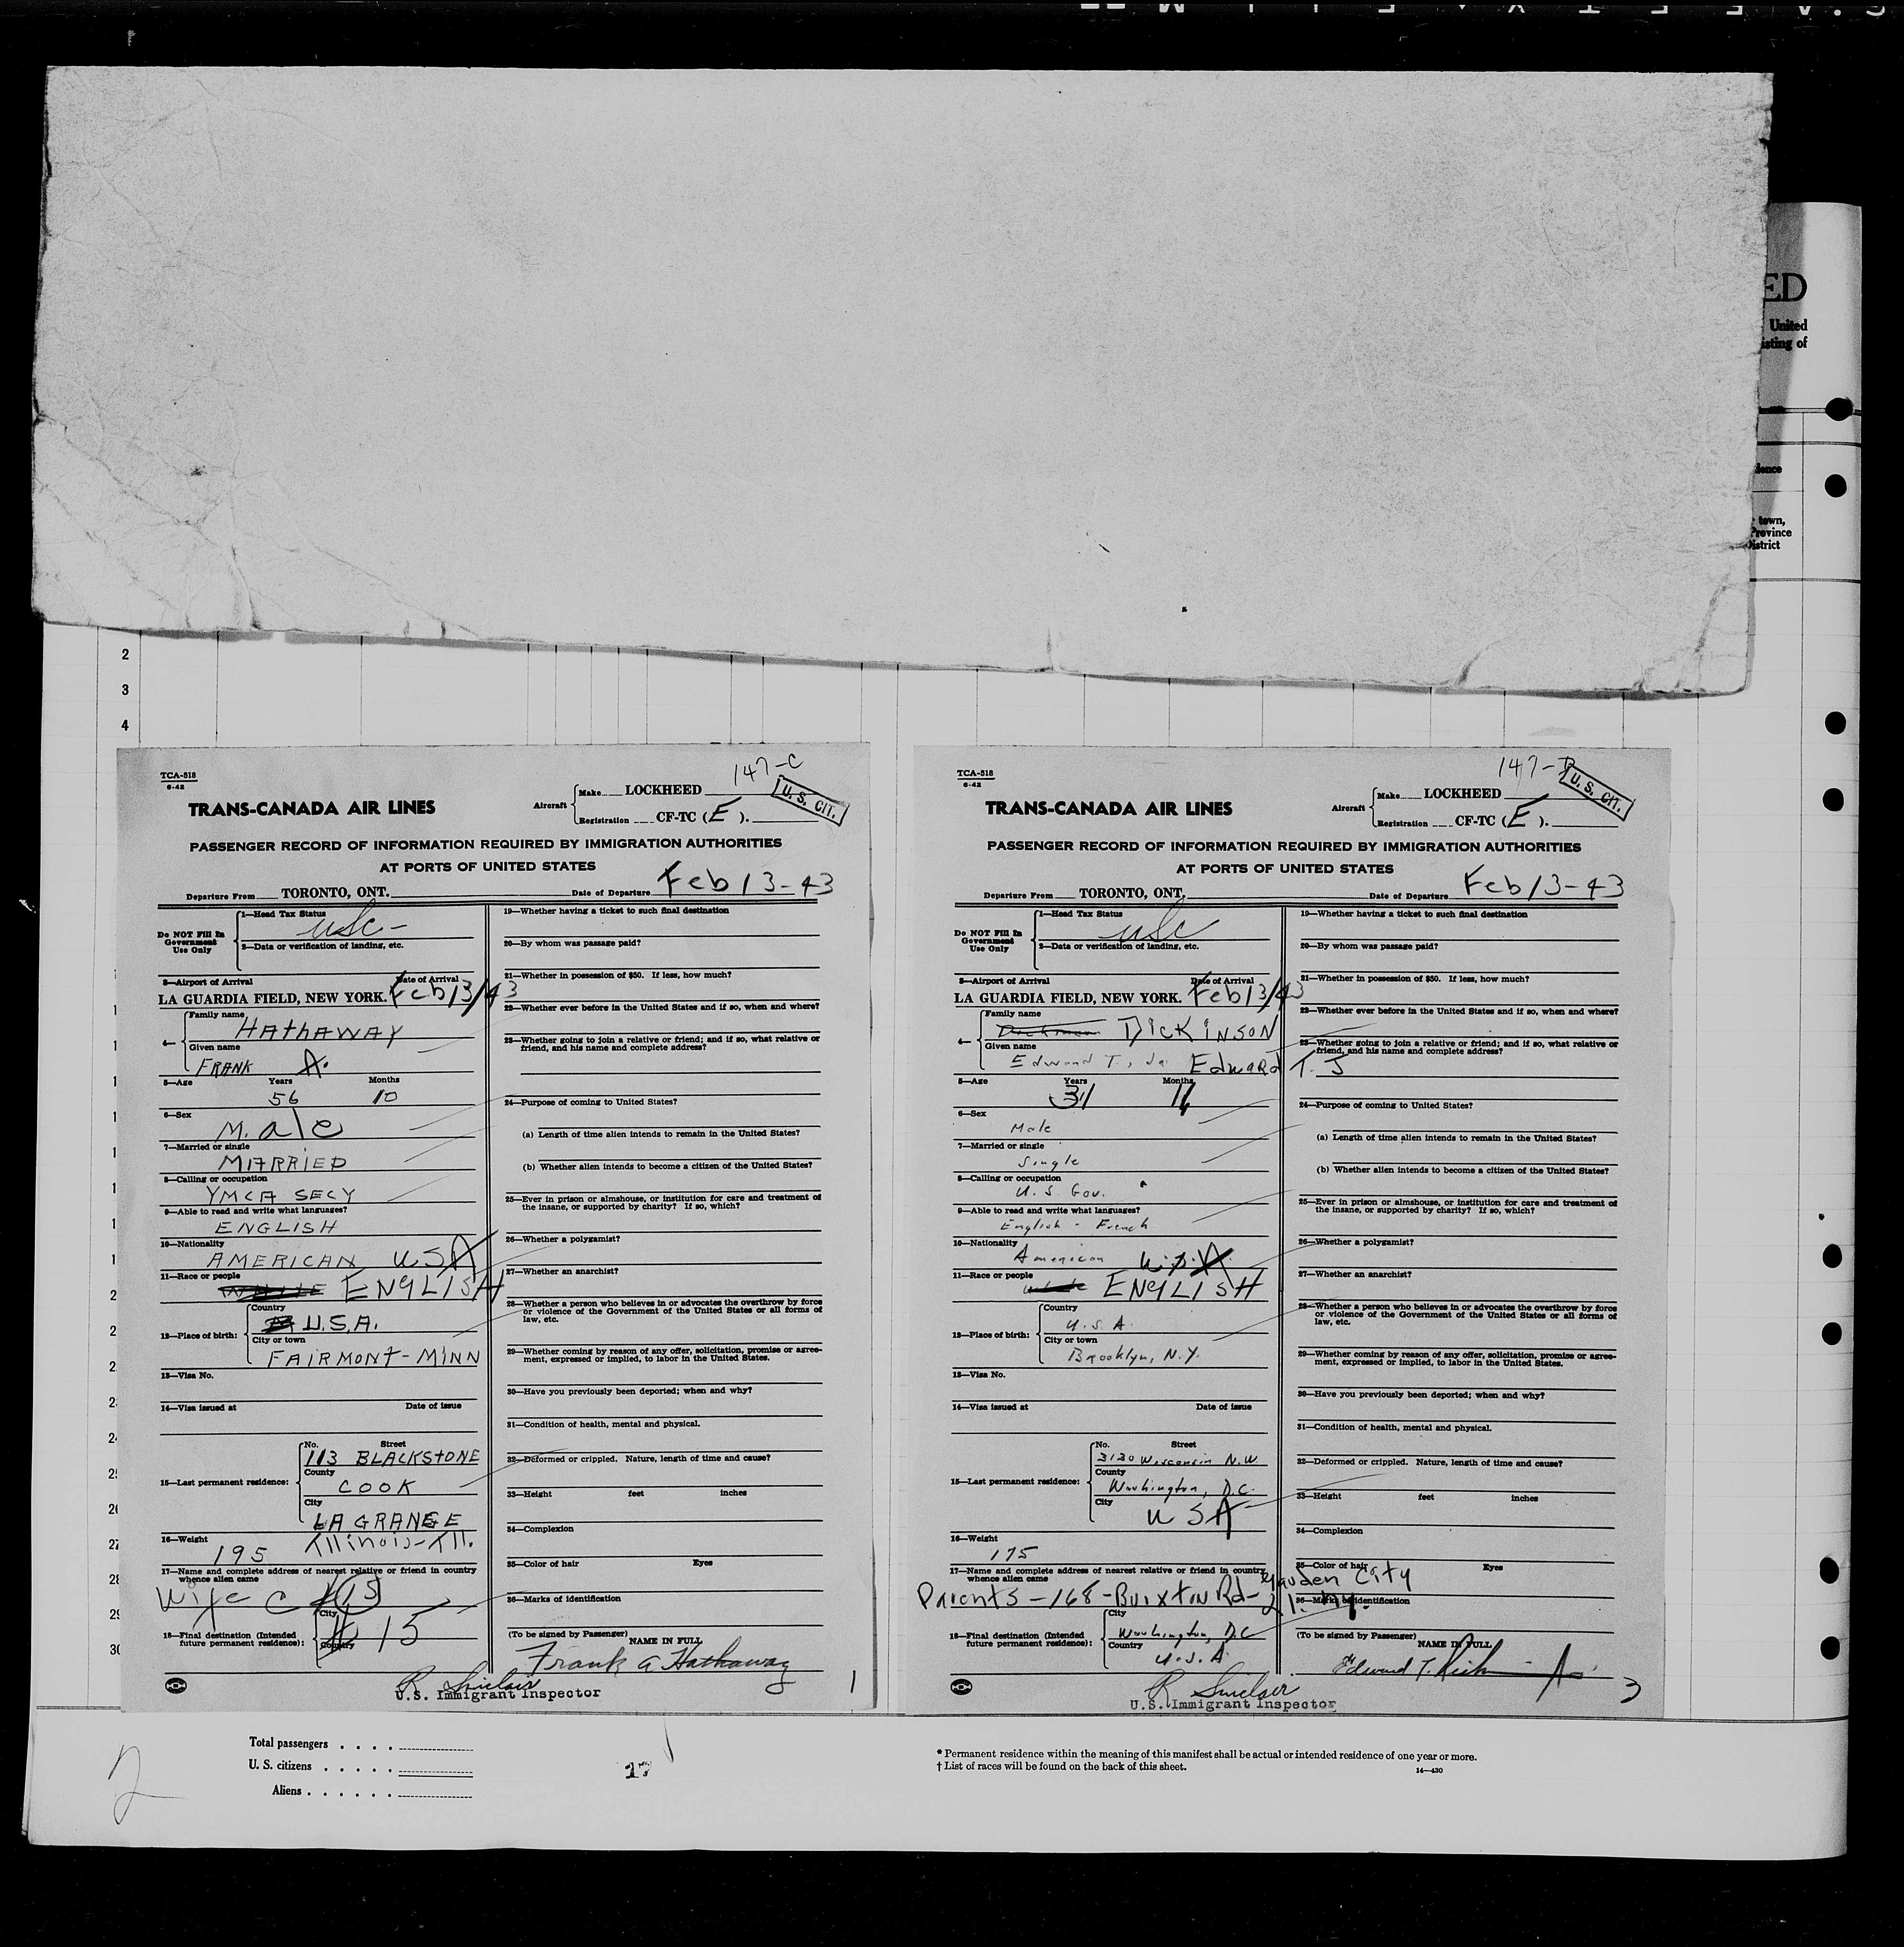 ED
United
isting of
dence
town,
Province
District
2
3
4
TCA-518
6-42
TRANS-CANADA AIR LINES
147-C
Aircraft
Make LOCKHEED
Registration CF-TC (E).
U. S. CIT.
PASSENGER RECORD OF INFORMATION REQUIRED BY IMMIGRATION AUTHORITIES
AT PORTS OF UNITED STATES
Departure From TORONTO, ONT. Date of Departure Feb 13-43
Do NOT Fill In
Government
Use Only
1—Head Tax Status
USC-
2—Data or verification of landing, etc.
3—Airport of Arrival Date of Arrival
LA GUARDIA FIELD, NEW YORK. Feb 13/43
4—
Family name
HATHAWAY
Given name
FRANK A.
5—Age Years Months
56 10
6—Sex
Male
7—Married or single
MARRIED
8—Calling or occupation
YMCA SECY
9—Able to read and write what languages?
ENGLISH
10—Nationality
AMERICAN USA
11—Race or people
WHITE ENGLISH
12—Place of birth:
Country
U.S.A.
City or town
FAIRMONT-MINN
13—Visa No.
14—Visa issued at Date of issue
15—Last permanent residence:
No. Street
113 BLACKSTONE
County
COOK
City
LA GRANGE
Illinois-Ill.
16—Weight
195
17—Name and complete address of nearest relative or friend in country
whence alien came
Wife C #15
18—Final destination (Intended
future permanent residence):
City
Country
# 15
19—Whether having a ticket to such final destination
20—By whom was passage paid?
21—Whether in possession of $50. If less, how much?
22—Whether ever before in the United States and if so, when and where?
23—Whether going to join a relative or friend; and if so, what relative or
friend, and his name and complete address?
24—Purpose of coming to United States?
(a) Length of time alien intends to remain in the United States?
(b) Whether alien intends to become a citizen of the United States?
25—Ever in prison or almshouse, or institution for care and treatment of
the insane, or supported by charity? If so, which?
26—Whether a polygamist?
27—Whether an anarchist?
28—Whether a person who believes in or advocates the overthrow by force
or violence of the Government of the United States or all forms of
law, etc.
29—Whether coming by reason of any offer, solicitation, promise or agree-
ment, expressed or implied, to labor in the United States.
30—Have you previously been deported; when and why?
31—Condition of health, mental and physical.
32—Deformed or crippled. Nature, length of time and cause?
33—Height feet inches
34—Complexion
35—Color of hair Eyes
36—Marks of identification
(To be signed by Passenger)
NAME IN FULL
Frank A Hathaway
R Sinclair
U.S. Immigrant Inspector
1
TCA-518
6-42
TRANS-CANADA AIR LINES
147-D
Aircraft
Make LOCKHEED
Registration CF-TC (E).
U. S. CIT.
PASSENGER RECORD OF INFORMATION REQUIRED BY IMMIGRATION AUTHORITIES
AT PORTS OF UNITED STATES
Departure From TORONTO, ONT. Date of Departure Feb 13-43
Do NOT Fill In
Government
Use Only
1—Head Tax Status
USC
2—Data or verification of landing, etc.
3—Airport of Arrival Date of Arrival
LA GUARDIA FIELD, NEW YORK. Feb 13/43
4—
Family name
Dickinson DICKINSON
Given name
Edward T., Jr. Edward T. J
5—Age Years Months
31 11
6—Sex
Male
7—Married or single
Single
8—Calling or occupation
U.S. Gov.
9—Able to read and write what languages?
English - French
10—Nationality
American U.S.A.
11—Race or people
white ENGLISH
12—Place of birth:
Country
U.S.A.
City or town
Brooklyn, N.Y.
13—Visa No.
14—Visa issued at Date of issue
15—Last permanent residence:
No. Street
3130 Wisconsin N.W.
County
Washington, D.C.
City
USA
16—Weight
175
17—Name and complete address of nearest relative or friend in country
whence alien came
Parents - 168 - Buxton Rd - Garden City
L.I. N.Y.
18—Final destination (Intended
future permanent residence):
City
Washington, DC
Country
U.S.A.
19—Whether having a ticket to such final destination
20—By whom was passage paid?
21—Whether in possession of $50. If less, how much?
22—Whether ever before in the United States and if so, when and where?
23—Whether going to join a relative or friend; and if so, what relative or
friend, and his name and complete address?
24—Purpose of coming to United States?
(a) Length of time alien intends to remain in the United States?
(b) Whether alien intends to become a citizen of the United States?
25—Ever in prison or almshouse, or institution for care and treatment of
the insane, or supported by charity? If so, which?
26—Whether a polygamist?
27—Whether an anarchist?
28—Whether a person who believes in or advocates the overthrow by force
or violence of the Government of the United States or all forms of
law, etc.
29—Whether coming by reason of any offer, solicitation, promise or agree-
ment, expressed or implied, to labor in the United States.
30—Have you previously been deported; when and why?
31—Condition of health, mental and physical.
32—Deformed or crippled. Nature, length of time and cause?
33—Height feet inches
34—Complexion
35—Color of hair Eyes
36—Marks of identification
(To be signed by Passenger)
NAME IN FULL
Edward T.
R Sinclair
U.S. Immigrant Inspector
3
24
25
26
27
28
29
30
Total passengers
U. S. citizens
Aliens
2
17
* Permanent residence within the meaning of this manifest shall be actual or intended residence of one year or more.
† List of races will be found on the back of this sheet.
14—430